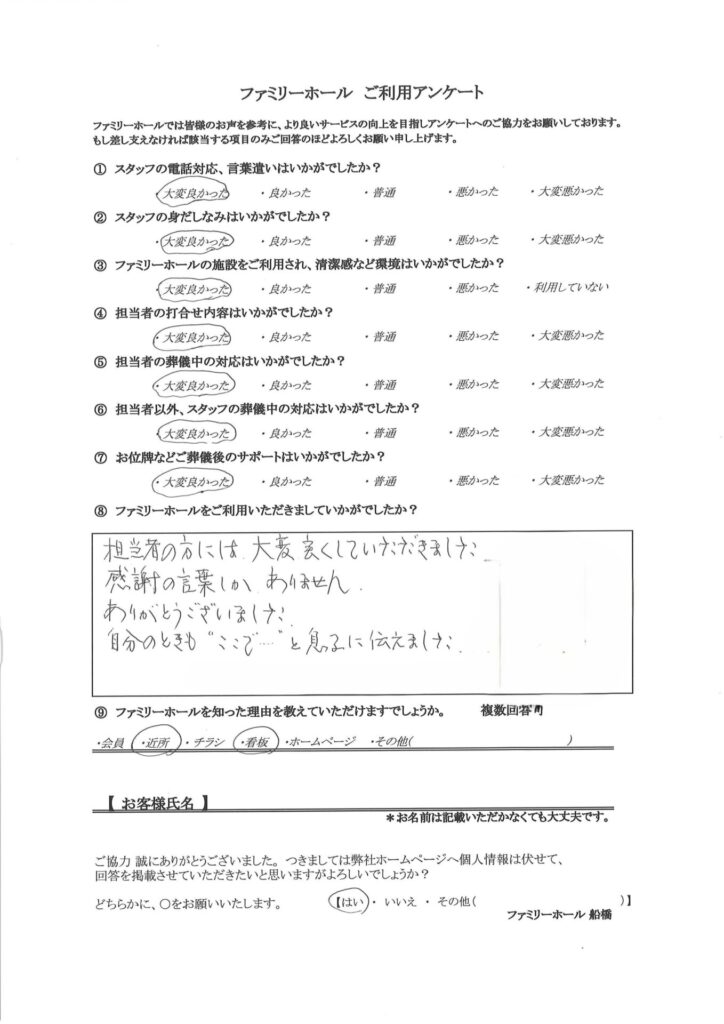 ファミリーホール ご利用アンケート
ファミリーホールでは皆様のお声を参考に、より良いサービスの向上を目指しアンケートへのご協力をお願いしております。
もし差し支えなければ該当する項目のみご回答のほどよろしくお願い申し上げます。
① スタッフの電話対応、言葉遣いはいかがでしたか？
・大変良かった ・良かった ・普通 ・悪かった ・大変悪かった
② スタッフの身だしなみはいかがでしたか？
・大変良かった ・良かった ・普通 ・悪かった ・大変悪かった
③ ファミリーホールの施設をご利用され、清潔感など環境はいかがでしたか？
・大変良かった ・良かった ・普通 ・悪かった ・利用していない
④ 担当者の打合せ内容はいかがでしたか？
・大変良かった ・良かった ・普通 ・悪かった ・大変悪かった
⑤ 担当者の葬儀中の対応はいかがでしたか？
・大変良かった ・良かった ・普通 ・悪かった ・大変悪かった
⑥ 担当者以外、スタッフの葬儀中の対応はいかがでしたか？
・大変良かった ・良かった ・普通 ・悪かった ・大変悪かった
⑦ お位牌などご葬儀後のサポートはいかがでしたか？
・大変良かった ・良かった ・普通 ・悪かった ・大変悪かった
⑧ ファミリーホールをご利用いただきましていかがでしたか？
担当者の方には 大変 良くしていただきました
感謝の言葉しか ありません.
ありがとうございました.
自分のときも "ここで…." と 息子に 伝えました.
⑨ ファミリーホールを知った理由を教えていただけますでしょうか。 複数回答可
・会員 ・近所 ・チラシ ・看板 ・ホームページ ・その他( )
【 お客様氏名 】
＊お名前は記載いただかなくても大丈夫です。
ご協力 誠にありがとうございました。つきましては弊社ホームページへ個人情報は伏せて、
回答を掲載させていただきたいと思いますがよろしいでしょうか？
どちらかに、○をお願いいたします。 【はい ・ いいえ ・ その他( )】
ファミリーホール 船橋